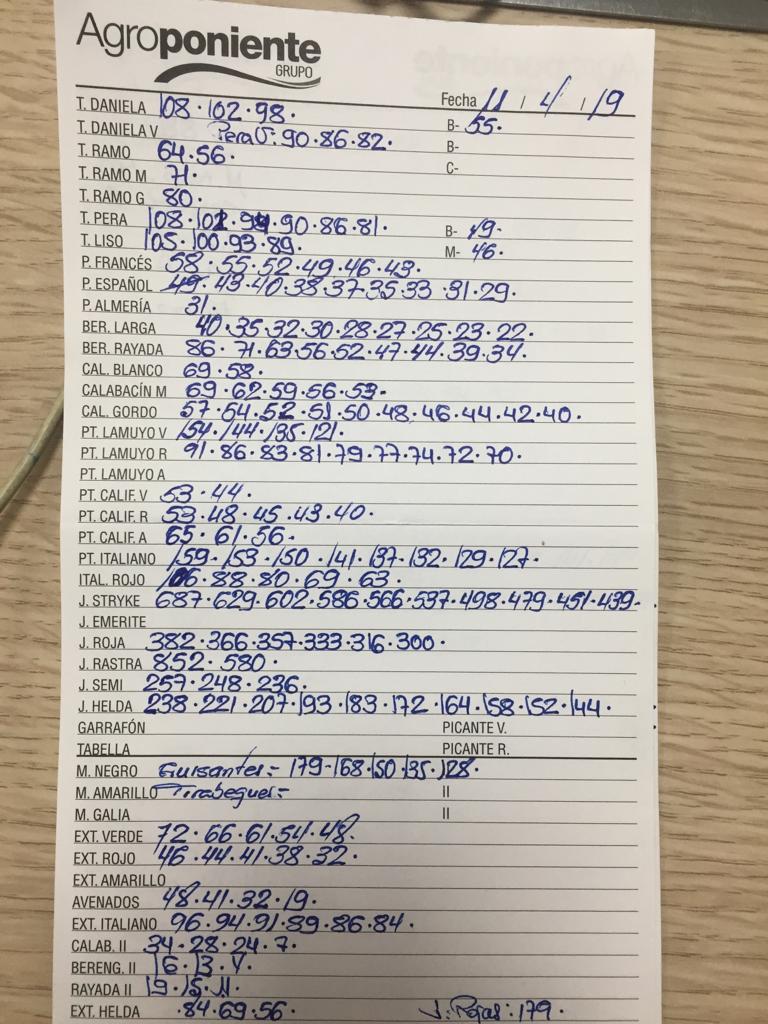 Agroponiente
GRUPO
Fecha 11 / 4 / 19
T. DANELA 108 · 102 · 98 · B- 55 ·
T. DANIELA V Pera V: 90 · 86 · 82 · B-
T. RAMO 64 · 56 · C-
T. RAMO M 71 ·
T. RAMO G 80 ·
T. PERA 108 · 102 · 94 · 90 · 86 · 81 · B- 49 ·
T. LISO 105 · 100 · 93 · 89 · M- 46 ·
P. FRANCÉS 58 · 55 · 52 · 49 · 46 · 43 ·
P. ESPAÑOL 49 · 43 · 40 · 38 · 37 · 35 · 33 · 31 · 29 ·
P. ALMERÍA 31 ·
BER. LARGA 40 · 35 · 32 · 30 · 28 · 27 · 25 · 23 · 22 ·
BER. RAYADA 86 · 71 · 63 · 56 · 52 · 47 · 44 · 39 · 34 ·
CAL. BLANCO 69 · 58 ·
CALABACÍN M 69 · 62 · 59 · 56 · 53 ·
CAL. GORDO 57 · 54 · 52 · 51 · 50 · 48 · 46 · 44 · 42 · 40 ·
PT. LAMUYO V 154 · 144 · 135 · 121 ·
PT. LAMUYO R 91 · 86 · 83 · 81 · 79 · 77 · 74 · 72 · 70 ·
PT. LAMUYO A
PT. CALIF. V 53 · 44 ·
PT. CALIF. R 53 · 48 · 45 · 43 · 40 ·
PT. CALIF. A 65 · 61 · 56 ·
PT. ITALIANO 159 · 153 · 150 · 141 · 137 · 132 · 129 · 127 ·
ITAL. ROJO 106 · 88 · 80 · 69 · 63 ·
J. STRYKE 687 · 629 · 602 · 586 · 566 · 537 · 498 · 479 · 451 · 439 ·
J. EMERITE
J. ROJA 382 · 366 · 357 · 333 · 316 · 300 ·
J. RASTRA 852 · 580 ·
J. SEMI 257 · 248 · 236 ·
J. HELDA 238 · 221 · 207 · 193 · 183 · 172 · 164 · 158 · 152 · 144 ·
GARRAFÓN PICANTE V.
TABELLA PICANTE R.
M. NEGRO Guisantes:- 179 - 168 · 150 · 135 · 128 ·
M. AMARILLO Tirabeques:- II
M. GALIA II
EXT. VERDE 72 · 66 · 61 · 54 · 48 ·
EXT. ROJO 46 · 44 · 41 · 38 · 32 ·
EXT. AMARILLO
AVENADOS 48 · 41 · 32 · 19 ·
EXT. ITALIANO 96 · 94 · 91 · 89 · 86 · 84 ·
CALAB. II 34 · 28 · 24 · 7 ·
BERENG. II 16 · 13 · 4 ·
RAYADA II 19 · 15 · 11 ·
EXT. HELDA · 84 · 69 · 56 · J. Rojas: 179 ·